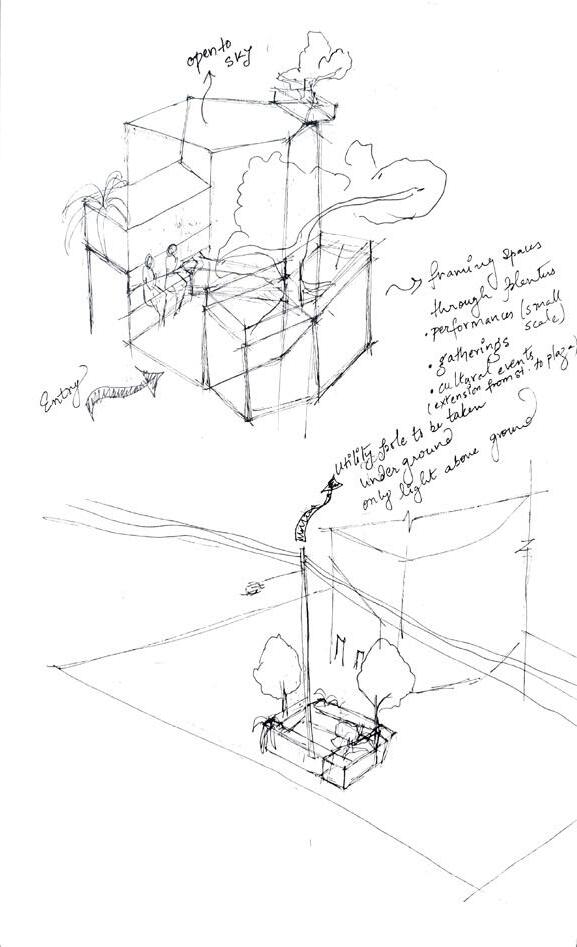 open to
sky
framing spaces
through planters
• performances (small
scale)
• gatherings
• cultural events
(extension from st. to plaza)
Entry
Utility pole to be taken
under ground
only light above ground